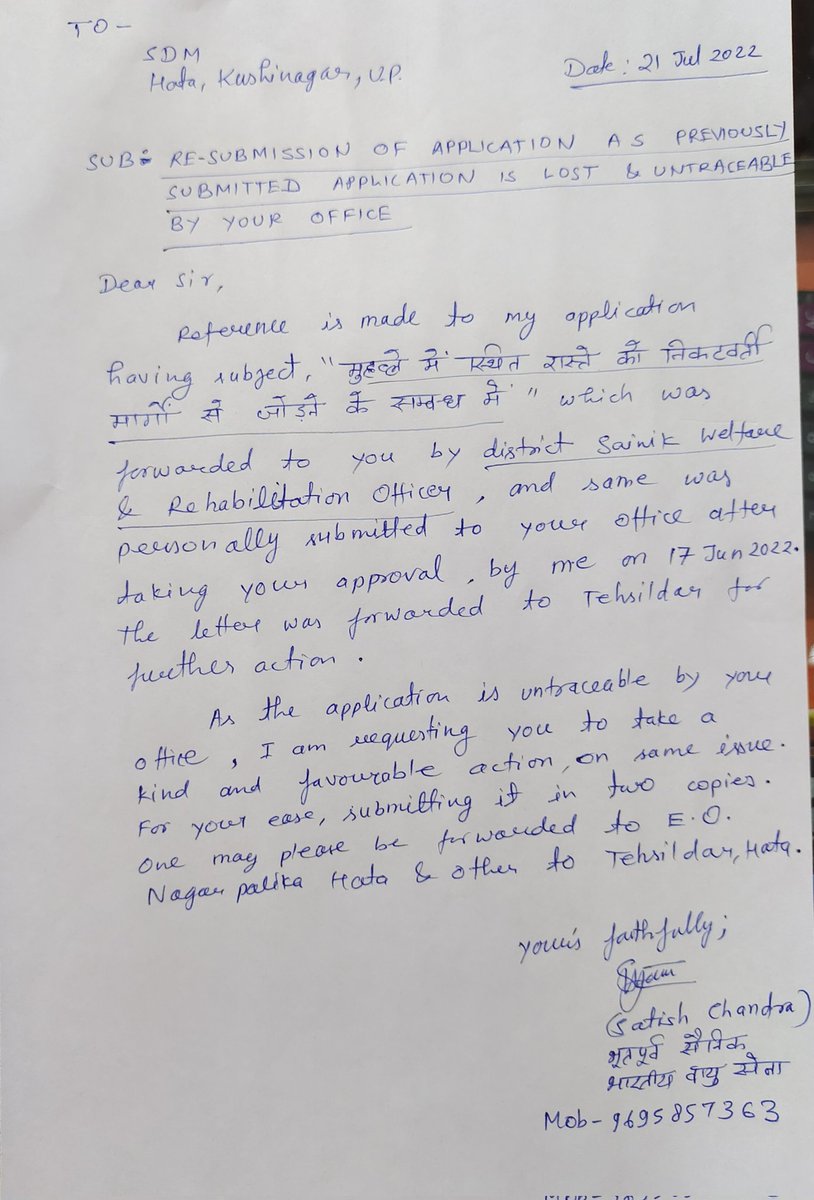 TO -
SDM
Hata, Kushinagar, U.P.
Date : 21 Jul 2022
SUB:- RE-SUBMISSION OF APPLICATION AS PREVIOUSLY
SUBMITTED APPLICATION IS LOST & UNTRACEABLE
BY YOUR OFFICE
Dear Sir,
Reference is made to my application
having subject, "मुहल्ले में स्थित रास्ते को निकटवर्ती
मार्गों से जोड़ने के सम्बन्ध में" which was
forwarded to you by district Sainik Welfare
& Rehabilitation Officer, and same was
personally submitted to your office after
taking your approval, by me on 17 Jun 2022.
The letter was forwarded to Tehsildar for
further action.
As the application is untraceable by your
office, I am requesting you to take a
kind and favourable action, on same issue.
For your ease, submitting it in two copies.
One may please be forwarded to E.O.
Nagar palika Hata & other to Tehsildar, Hata.
Your's faithfully;
(Satish Chandra)
भूतपूर्व सैनिक
भारतीय वायु सेना
Mob - 9695857363